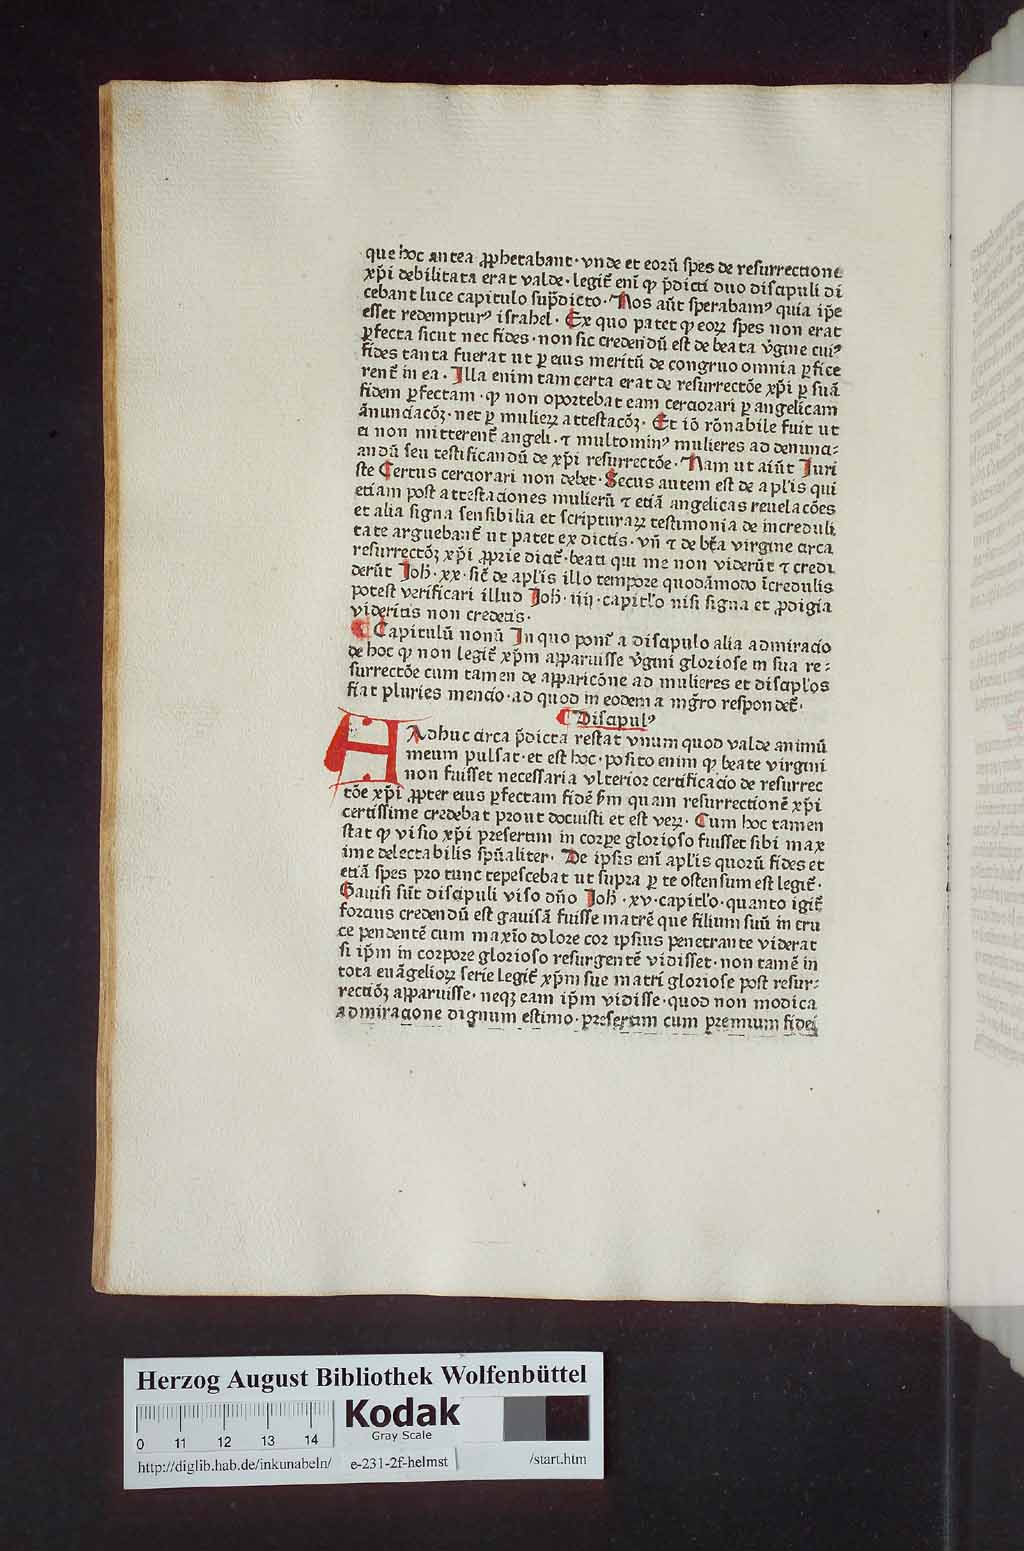 que hoc antea ꝓphetabant · vnde et eorū spes de resurrectione
xp̄i debilitata erat valde · legit᷑ enī ꝙ p̄dicti duo discipuli di
cebant luce capitulo sup̄dicto · Nos aūt sperabamꝰ quia ip̄e
esset redempturꝰ israhel · Ex quo patet ꝙ eoꝝ spes non erat
ꝑfecta sicut nec fides · non sic credendū est de beata v̄gine cuiꝰ
fides tanta fuerat ut ꝑ eius meritū de congruo omnia ꝑfice
rent᷑ in ea · Illa enim tam certa erat de resurrectōe xp̄i ꝑ suā
fidem ꝑfectam · ꝙ non oportebat eam cerciorari ꝑ angelicam
ānunciacōꝫ · nec ꝑ mulieꝝ attestacōꝫ · Et iō rōnabile fuit ut
ei non mitterent᷑ angeli · ⁊ multominꝰ mulieres ad denunci⸗
andū seu testificandū de xp̄i resurrectōe · Nam ut aiūt Juri
ste Certus cerciorari non debet · Secus autem est de aplis qui
etiam post attestaciones mulierū ⁊ etiā angelicas reuelacōes
et alia signa sensibilia et scripturaꝝ testimonia de increduli
tate arguebant᷑ ut patet ex dictis · vn̄ ⁊ de bt̄a virgine circa
resurrectōꝫ xp̄i ꝓprie dicit᷑ · beati qui me non viderūt ⁊ credi
derūt Joh̄ · xx · sic᷑ de aplis illo tempore quodāmodo īcredulis
potest verificari illud Joh̄ · iiij · capitl'o nisi signa et ꝓdigia
videritis non creditis ·
Capitulū nonū In quo ponit᷑ a discipulo alia admiracio
de hoc ꝙ non legit᷑ xp̄m apparuisse v̄gini gloriose in sua re⸗
surrectōe cum tamen de apparicōne ad mulieres et discipl'os
fiat pluries mencio · ad quod in eodem a mgr̄o respondet᷑ ·
Discipulꝰ
Adhuc circa p̄dicta restat vnum quod valde animū
meum pulsat · et est hoc · posito enim ꝙ beate virgini
non fuisset necessaria vlterior certificacio de resurrec
tōe xp̄i ꝓpter eius ꝑfectam fidē sm̄ quam resurrectionē xp̄i
certissime credebat prout docuisti et est veꝝ · Cum hoc tamen
stat ꝙ visio xp̄i presertim in corpe glorioso fuisset sibi max
ime delectabilis spūaliter · De ipsis enī aplis quorū fides et
etiā spes pro tunc tepescebat ut supra ꝑ te ostensum est legit᷑ ·
Gauisi sūt discipuli viso dn̄o Joh̄ · xv · capitl'o · quanto igit᷑
forcius credendū est gauisā fuisse matrē que filium suū in cru
ce pendentē cum maxīo dolore cor ipsius penetrante viderat
si ip̄m in corpore glorioso resurgentē vidisset · non tamē in
tota euāgelioꝝ serie legit᷑ xp̄m sue matri gloriose post resur⸗
rectiōꝫ apparuisse · neqꝫ eam ip̄m vidisse · quod non modica
admiracione dignum estimo · presertim cum premium fidei
Herzog August Bibliothek Wolfenbüttel
Kodak
Gray Scale
0 11 12 13 14
http://diglib.hab.de/inkunabeln/ e-231-2f-helmst /start.htm